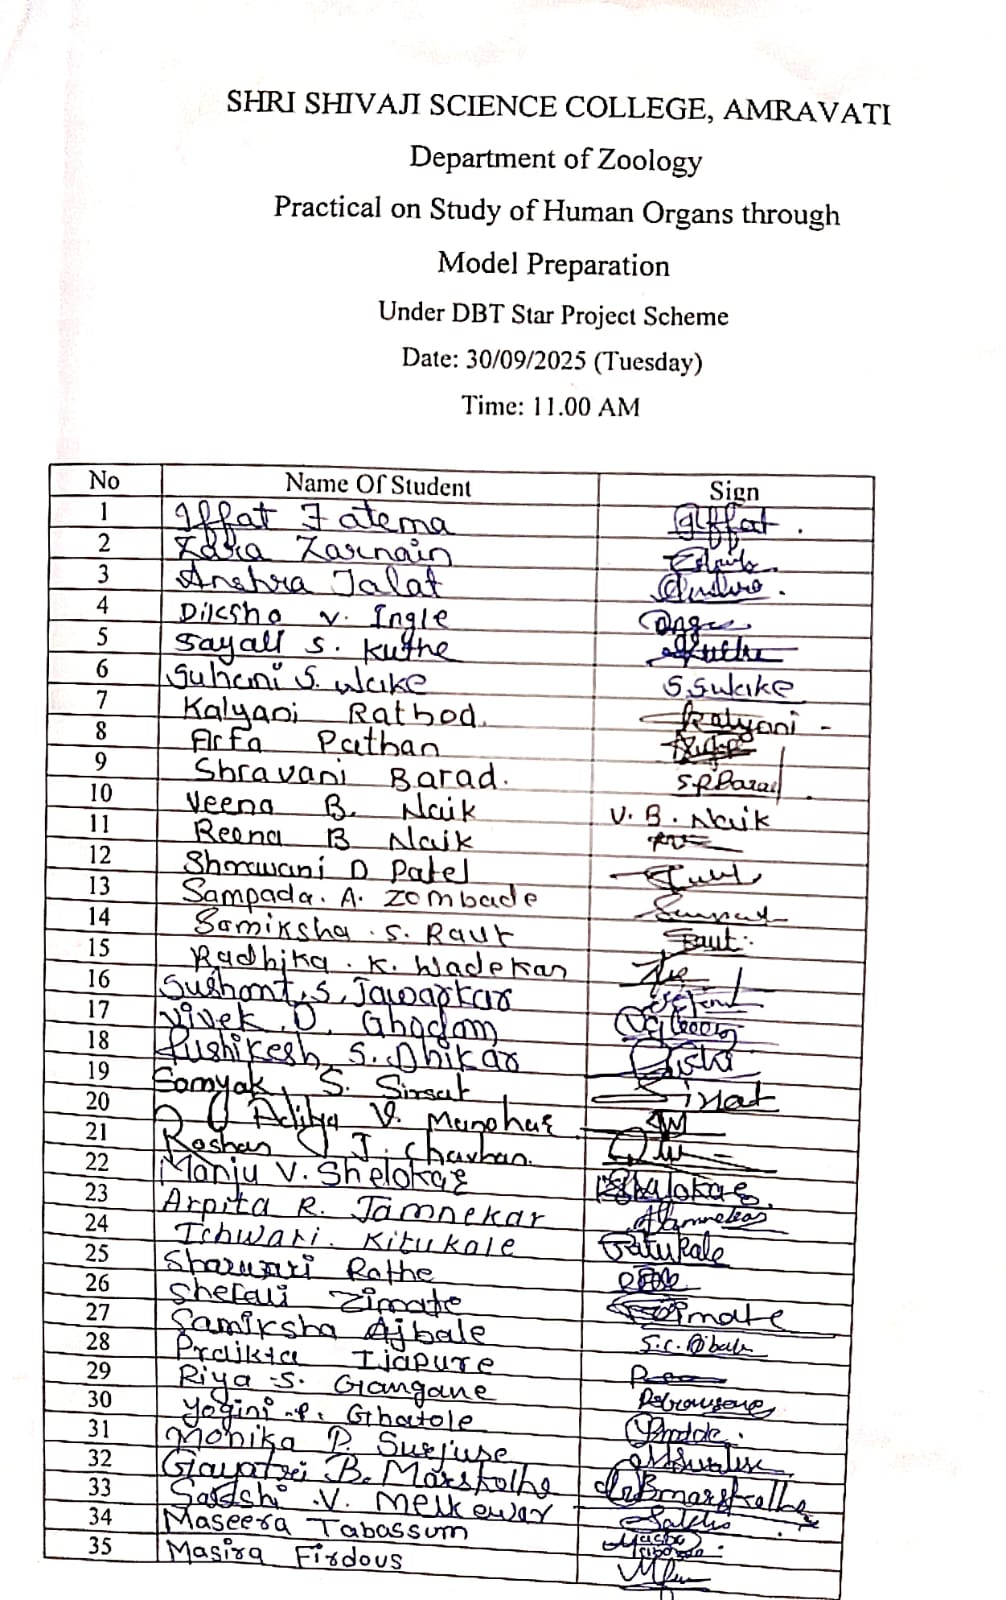 SHRI SHIVAJI SCIENCE COLLEGE, AMRAVATI
Department of Zoology
Practical on Study of Human Organs through
Model Preparation
Under DBT Star Project Scheme
Date: 30/09/2025 (Tuesday)
Time: 11.00 AM
No Name Of Student Sign
1 Iffat Fatema Iffat
2 Zara Zarnain
3 Anshra Jalat
4 Diksha v. Ingle
5 Sayali S. Kuthe Kuthe
6 Suhani S. Wake S.S.Wake
7 Kalyani Rathod. Kalyani
8 Arfa Pathan
9 Shravani Barad. S.R.Barad
10 Veena B. Naik V. B. Naik
11 Reena B Naik
12 Shrawani D Patel
13 Sampada. A. Zombade
14 Samiksha . S. Raut Raut
15 Radhika . K. Wadekar
16 Sushant. S. Jawarkar
17 Vivek . D. Ghodam
18 Rushikesh S. Dhikar
19 Somyak S. Sirsat Sirsat
20 Aditya V. Manohar
21 Roshan J. Chavhan.
22 Manju V. Shelokar Shelokar
23 Arpita R. Jamnekar
24 Ishwari. Kitukale Kitukale
25 Sharwari Rothe
26 Shefali Zimate Zimate
27 Samiksha Ajbale S.C.Ajbale
28 Prajkta Ijapure
29 Riya S. Gangane
30 Yogini P. Ghatole
31 Monika P. Surjuse
32 Gayatri B. Marskolhe G.B.marskolhe
33 Sakshi .V. Melkewar
34 Maseera Tabassum
35 Masira Firdous